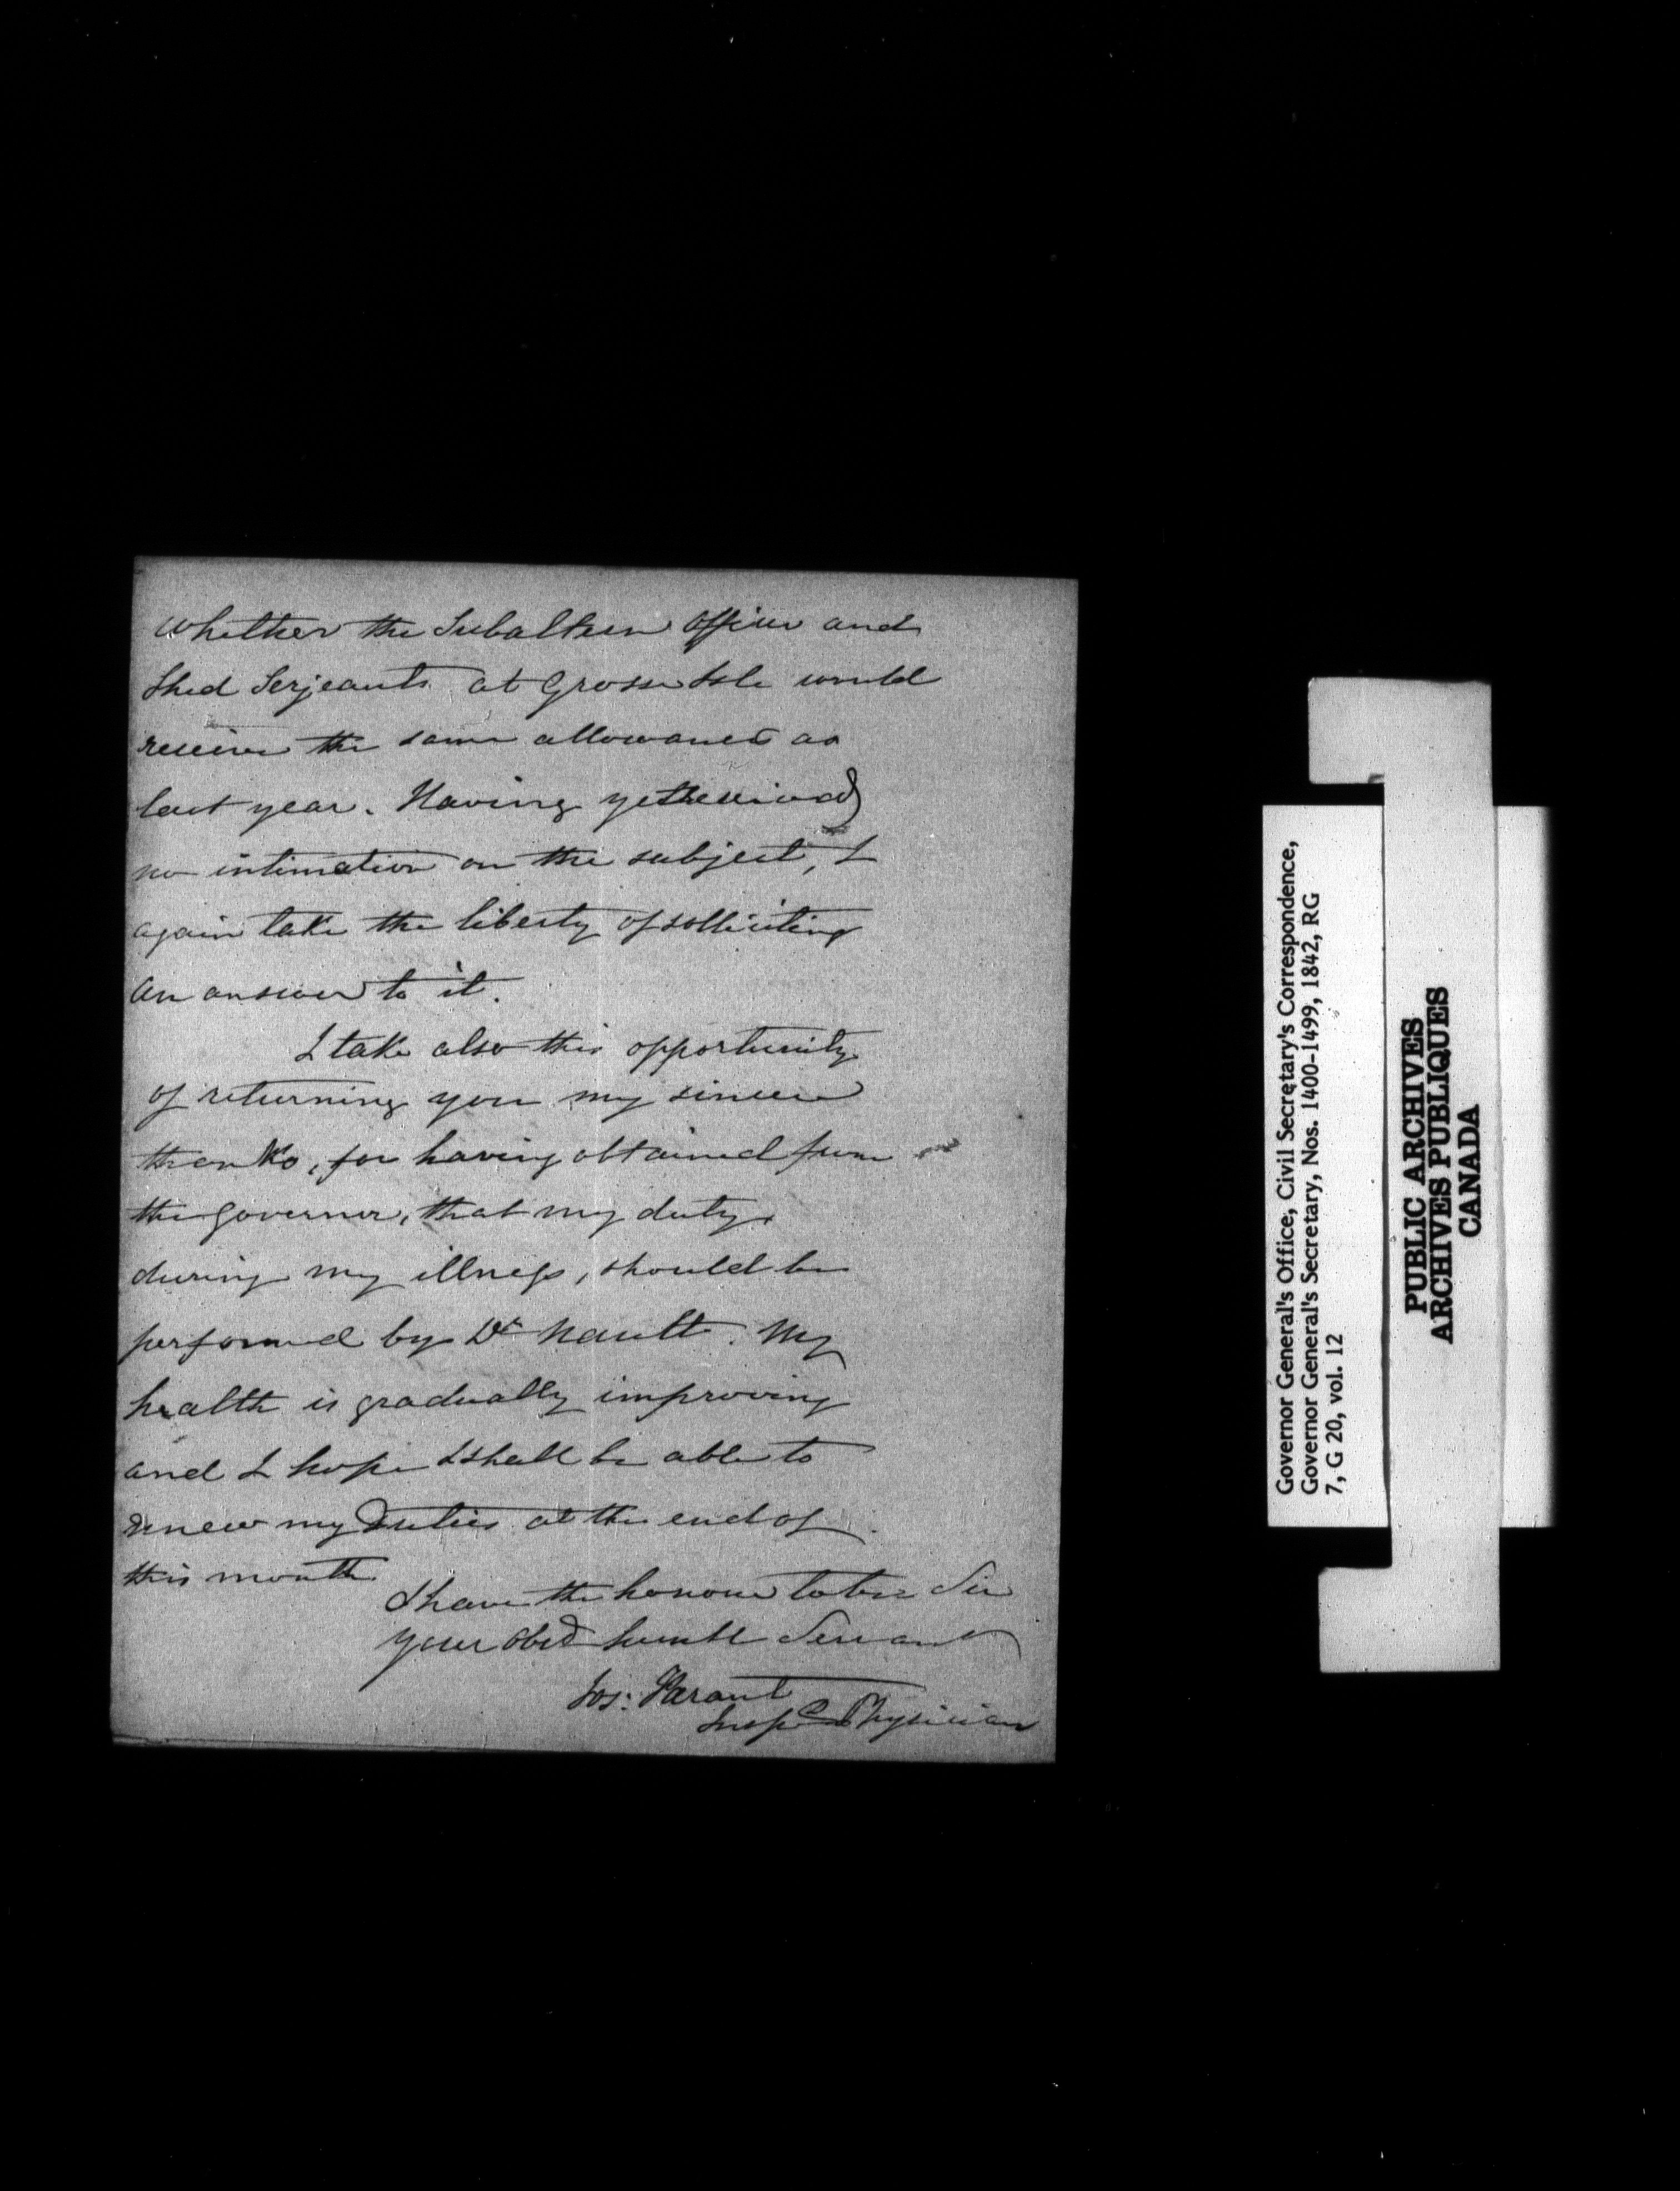 whether the Subaltern officer and
Shed Serjeants at Grosse Isle would
receive the same allowances as
last year. Having yet received
no intimation on the subject, I
again take the liberty of solliciting
an answer to it.
I take also this opportunity
of returning you my sincere
thanks, for having obtained from
the governor, that my duty
during my illness, should be
performed by Dr Nault. My
health is gradually improving
and I hope I shall be able to
renew my Duties at the end of
this month
I have the honour to be Sir
your obed humble Servant
Jos: Parant
Inspg Physician
Governor General's Office, Civil Secretary's Correspondence,
Governor General's Secretary, Nos. 1400-1499, 1842, RG
7, G 20, vol. 12
PUBLIC ARCHIVES
ARCHIVES PUBLIQUES
CANADA